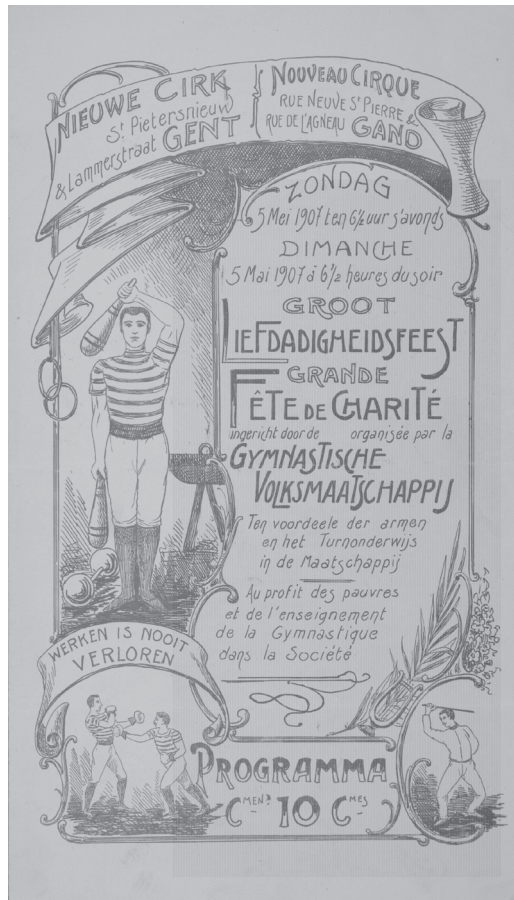 NIEUWE CIRK
St Pietersnieuw
& Lammerstraat GENT
NOUVEAU CIRQUE
RUE NEUVE St PIERRE &
RUE DE L'AGNEAU GAND
ZONDAG
5 Mei 1907 ten 6½ uur s'avonds
DIMANCHE
5 Mai 1907 à 6½ heures du soir
GROOT
LIEFDADIGHEIDSFEEST
GRANDE
FÊTE DE CHARITÉ
ingericht door de organisée par la
GYMNASTISCHE
VOLKSMAATSCHAPPIJ
Ten voordeele der armen
en het Turnonderwijs
in de Maatschappij
Au profit des pauvres
et de l'enseignement
de la Gymnastique
dans la Société
WERKEN IS NOOIT
VERLOREN
PROGRAMMA
CMEN? 10 CMES